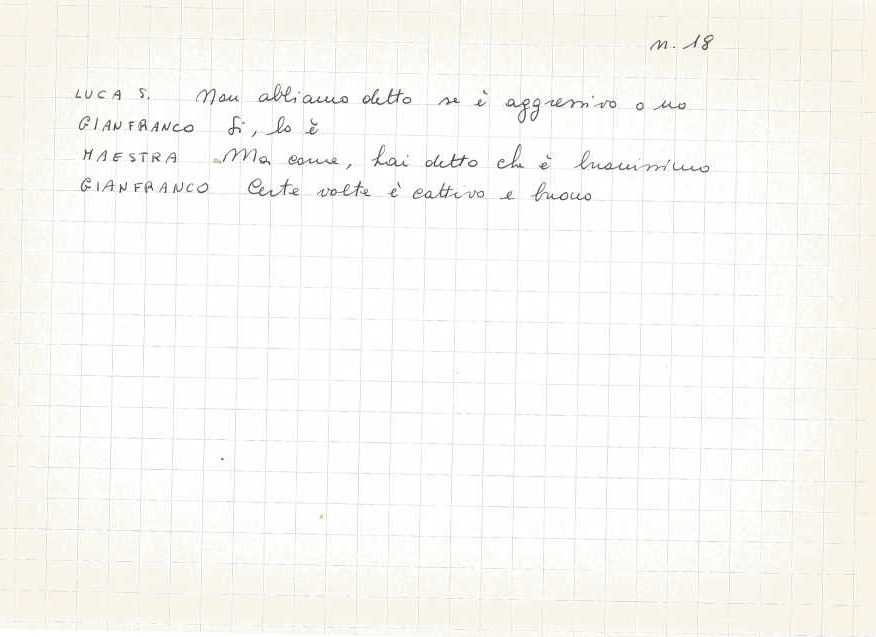 n. 18
LUCA S. Non abbiamo detto se è aggressivo o no
GIANFRANCO Si, lo è
MAESTRA Ma come, hai detto che è buonissimo
GIANFRANCO Certe volte è cattivo e buono